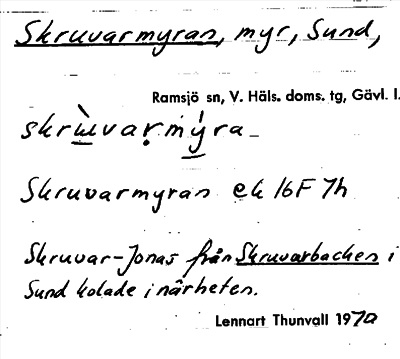 Skruvarmyran, myr, Sund,
Ramsjö sn, V. Häls. doms. tg, Gävl. l.
skrùvarmýra
Skruvarmyran ek 16F 7h
Skruvar-Jonas från Skruvarbacken i
Sund kolade i närheten.
Lennart Thunvall 1970